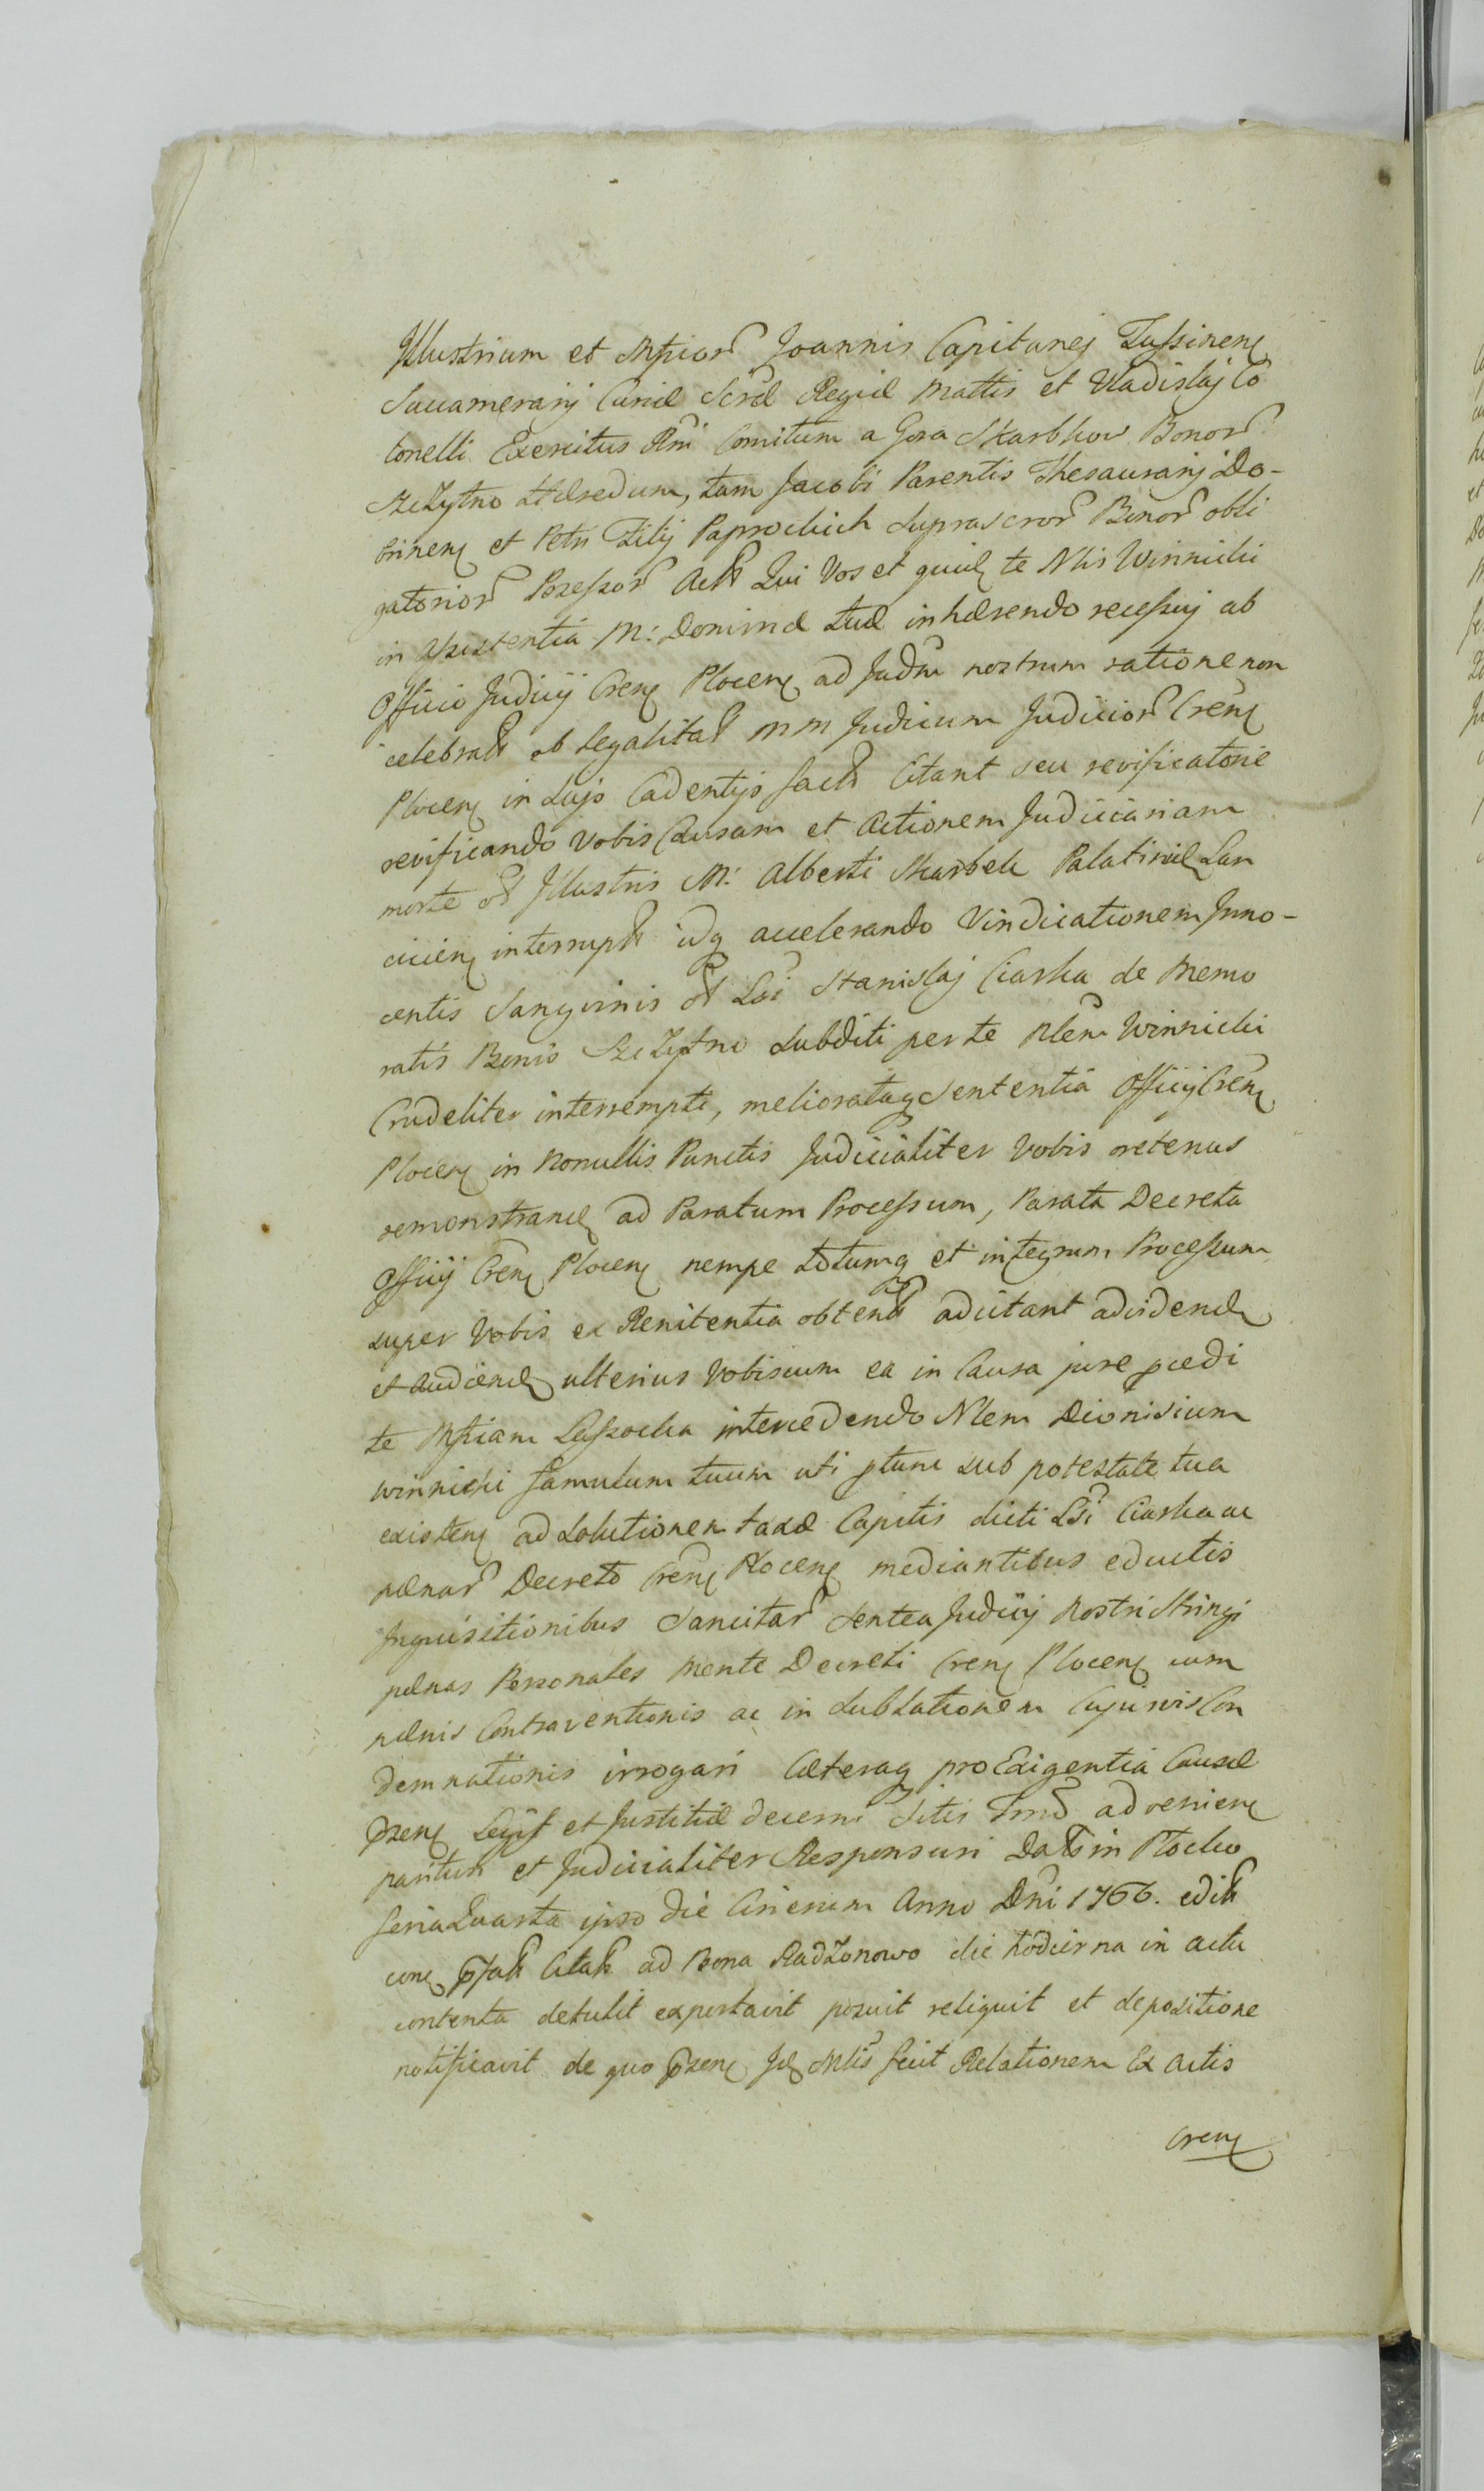 Illustrium et Mficor Joannis Capitanej Tussinen
Succamerarij Curiæ Scræ Regiæ Mattis et Vladislaj Co
lonelli Exercitus Rni Comitum a Gora Skarbkow Bonor
Szczytno Hæredum, tam Jacobi Parentis Thesaurarij Do-
brinen et Petri Filij Paprockich Suprascror Bonor obli
gatorior Possessor Act Qui Vos et quil te Nlis Winnicki
in assistentia M: Dominæ tuæ inhærendo recessuj ab
Officio Judicij Cren Plocen ad Judm nostrum ratione non
celebrat ob legalitat MM Judicum Judicior Cren
Plocen in lujs Cadentijs fact Citant seu revificatorie
revificando vobis Causam et Actionem Judiciariam
morte ol Illustris M: Alberti Skarbek Palatinil Lan
cicien interrupt idq accelerando Vindicationem Inno-
centis Sanguinis ol Lsi Stanislaj Ciarka de memo
ratis Bonis Szczytno Subditi per te Nlem Winnicki
Crudeliter interrempti, melioratag Sententia Officij Cren
Plocen in Nonullis Punctis Judicialiter vobis oretenus
remonstranl ad Paratum Processum, Parata Decreta
Officij Cren Plocen nempe totumq et integrum Processum
super Vobis ex Renitentia obtent adcitant advidenl
et Audienl ulterius Vobiscum ea in Causa jure pcedi
te Mficam Lassocka intercedendo Nlem Dionisium
Winnicki famulum tuum uti ptum sub potestate tua
existen ad Solutionem taxæ Capitis dicti Lsi Ciarka ac
pænar Decreto Cren Plocen mediantibus eductis
Inquisitionibus Sancitar Sentea Judicij Nostri Stringi
pænas Personales mente Decreti Cren Plocen cum
pænis Contraventionis ac in Sublationem Cujusvis Con
demnationis irrogari Cæteraq pro Exigentia Causæ
pssen Legis et Justitiæ decerni Sitis Trno advenien
parituri et Judicialiter Responsuri Dat in Plocko
feria Quarta ipso die Cinerum Anno Dni 1766. edit
con pfat Citat ad Bona Radzonowo die hodierna in actu
contenta detulit exportavit posuit reliquit et depositione
notificavit de quo pssen Jd Mlis fecit Relationem Ex Actis
Cren